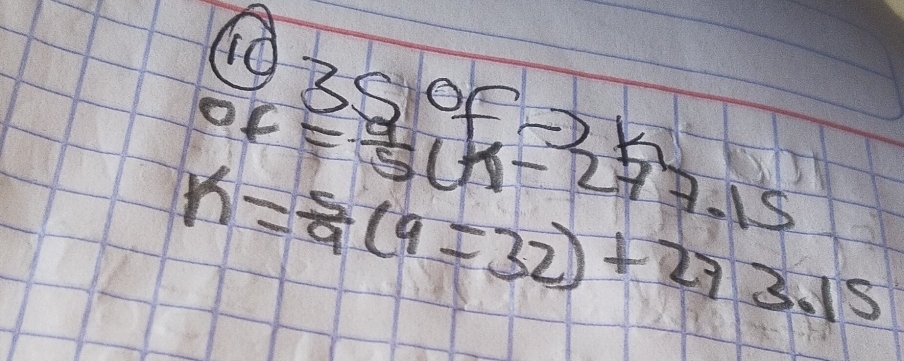 10 35 °f → K
°f = 9/5 (K - 277.15
K = 5/9 (9 = 32) + 273.15